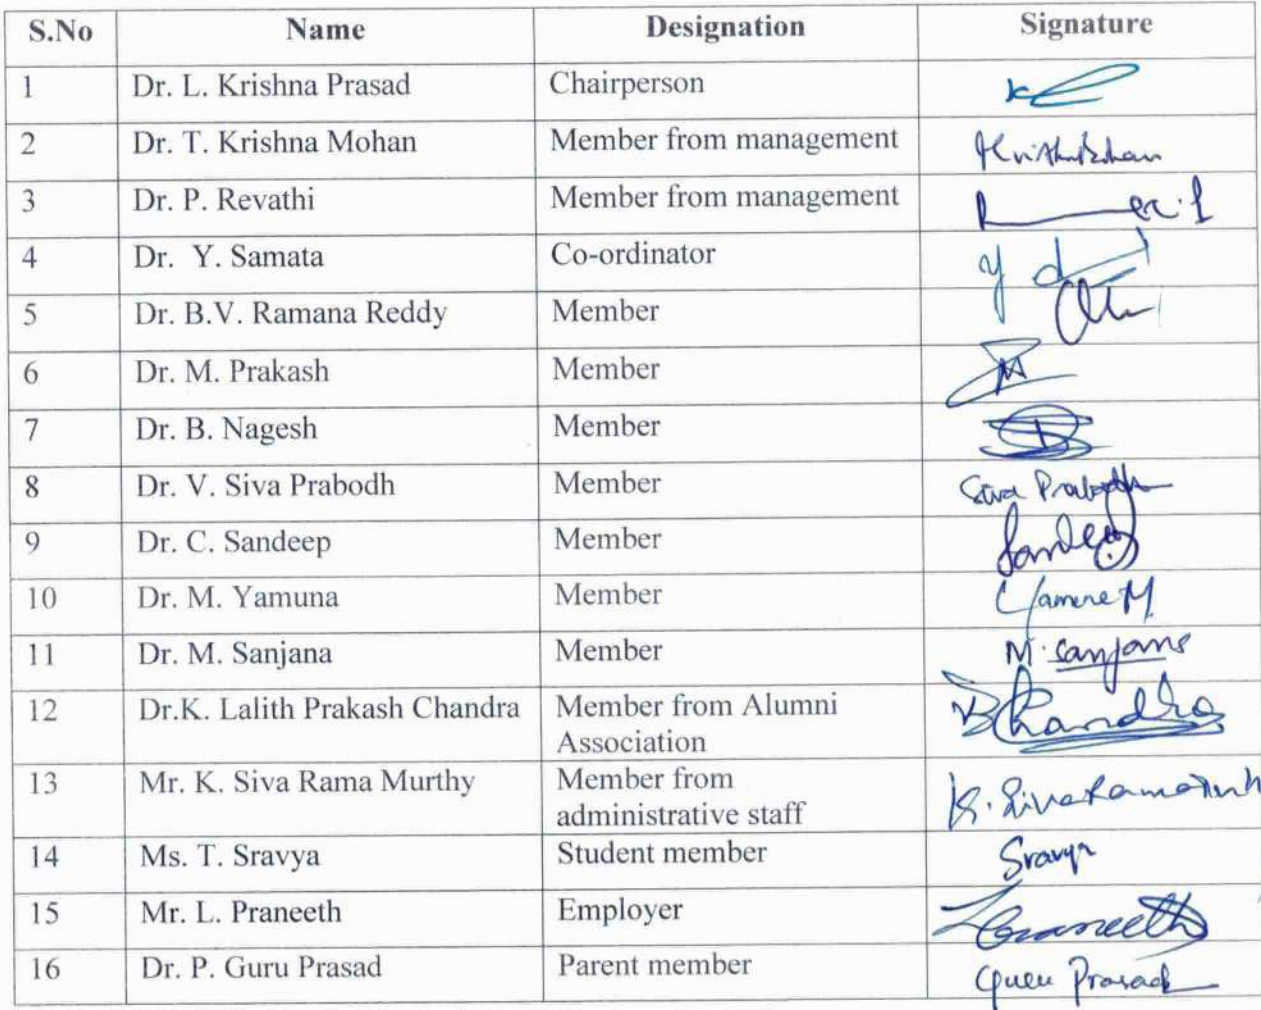 S.No Name Designation Signature
1 Dr. L. Krishna Prasad Chairperson
2 Dr. T. Krishna Mohan Member from management
3 Dr. P. Revathi Member from management
4 Dr. Y. Samata Co-ordinator
5 Dr. B.V. Ramana Reddy Member
6 Dr. M. Prakash Member
7 Dr. B. Nagesh Member
8 Dr. V. Siva Prabodh Member Siva Prabodh
9 Dr. C. Sandeep Member Sandeep
10 Dr. M. Yamuna Member
11 Dr. M. Sanjana Member M. Sanjana
12 Dr.K. Lalith Prakash Chandra Member from Alumni
Association
13 Mr. K. Siva Rama Murthy Member from
administrative staff
14 Ms. T. Sravya Student member Sravya
15 Mr. L. Praneeth Employer
16 Dr. P. Guru Prasad Parent member Guru Prasad